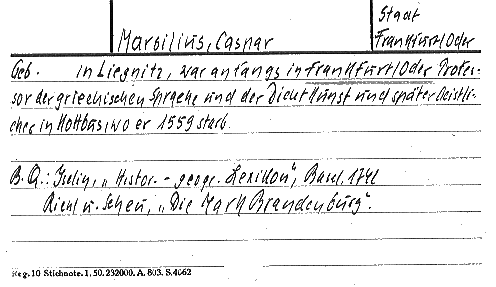 Staat
Marsilius, Caspar Frankfurt/Oder
Geb. in Liegnitz, war anfangs in Frankfurt/Oder Profes-
sor der griechischen Sprache und der Dichtkunst und später Geistli-
cher in Kottbus, wo er 1559 starb.
B. Q.: Iselin, „Histor. - geogr. Lexikon", Basel, 1741
Riehl u. Scheu, „Die Mark Brandenburg".
Reg. 10 Stichnote. 1, 50. 232000. A. 803. S. 4062